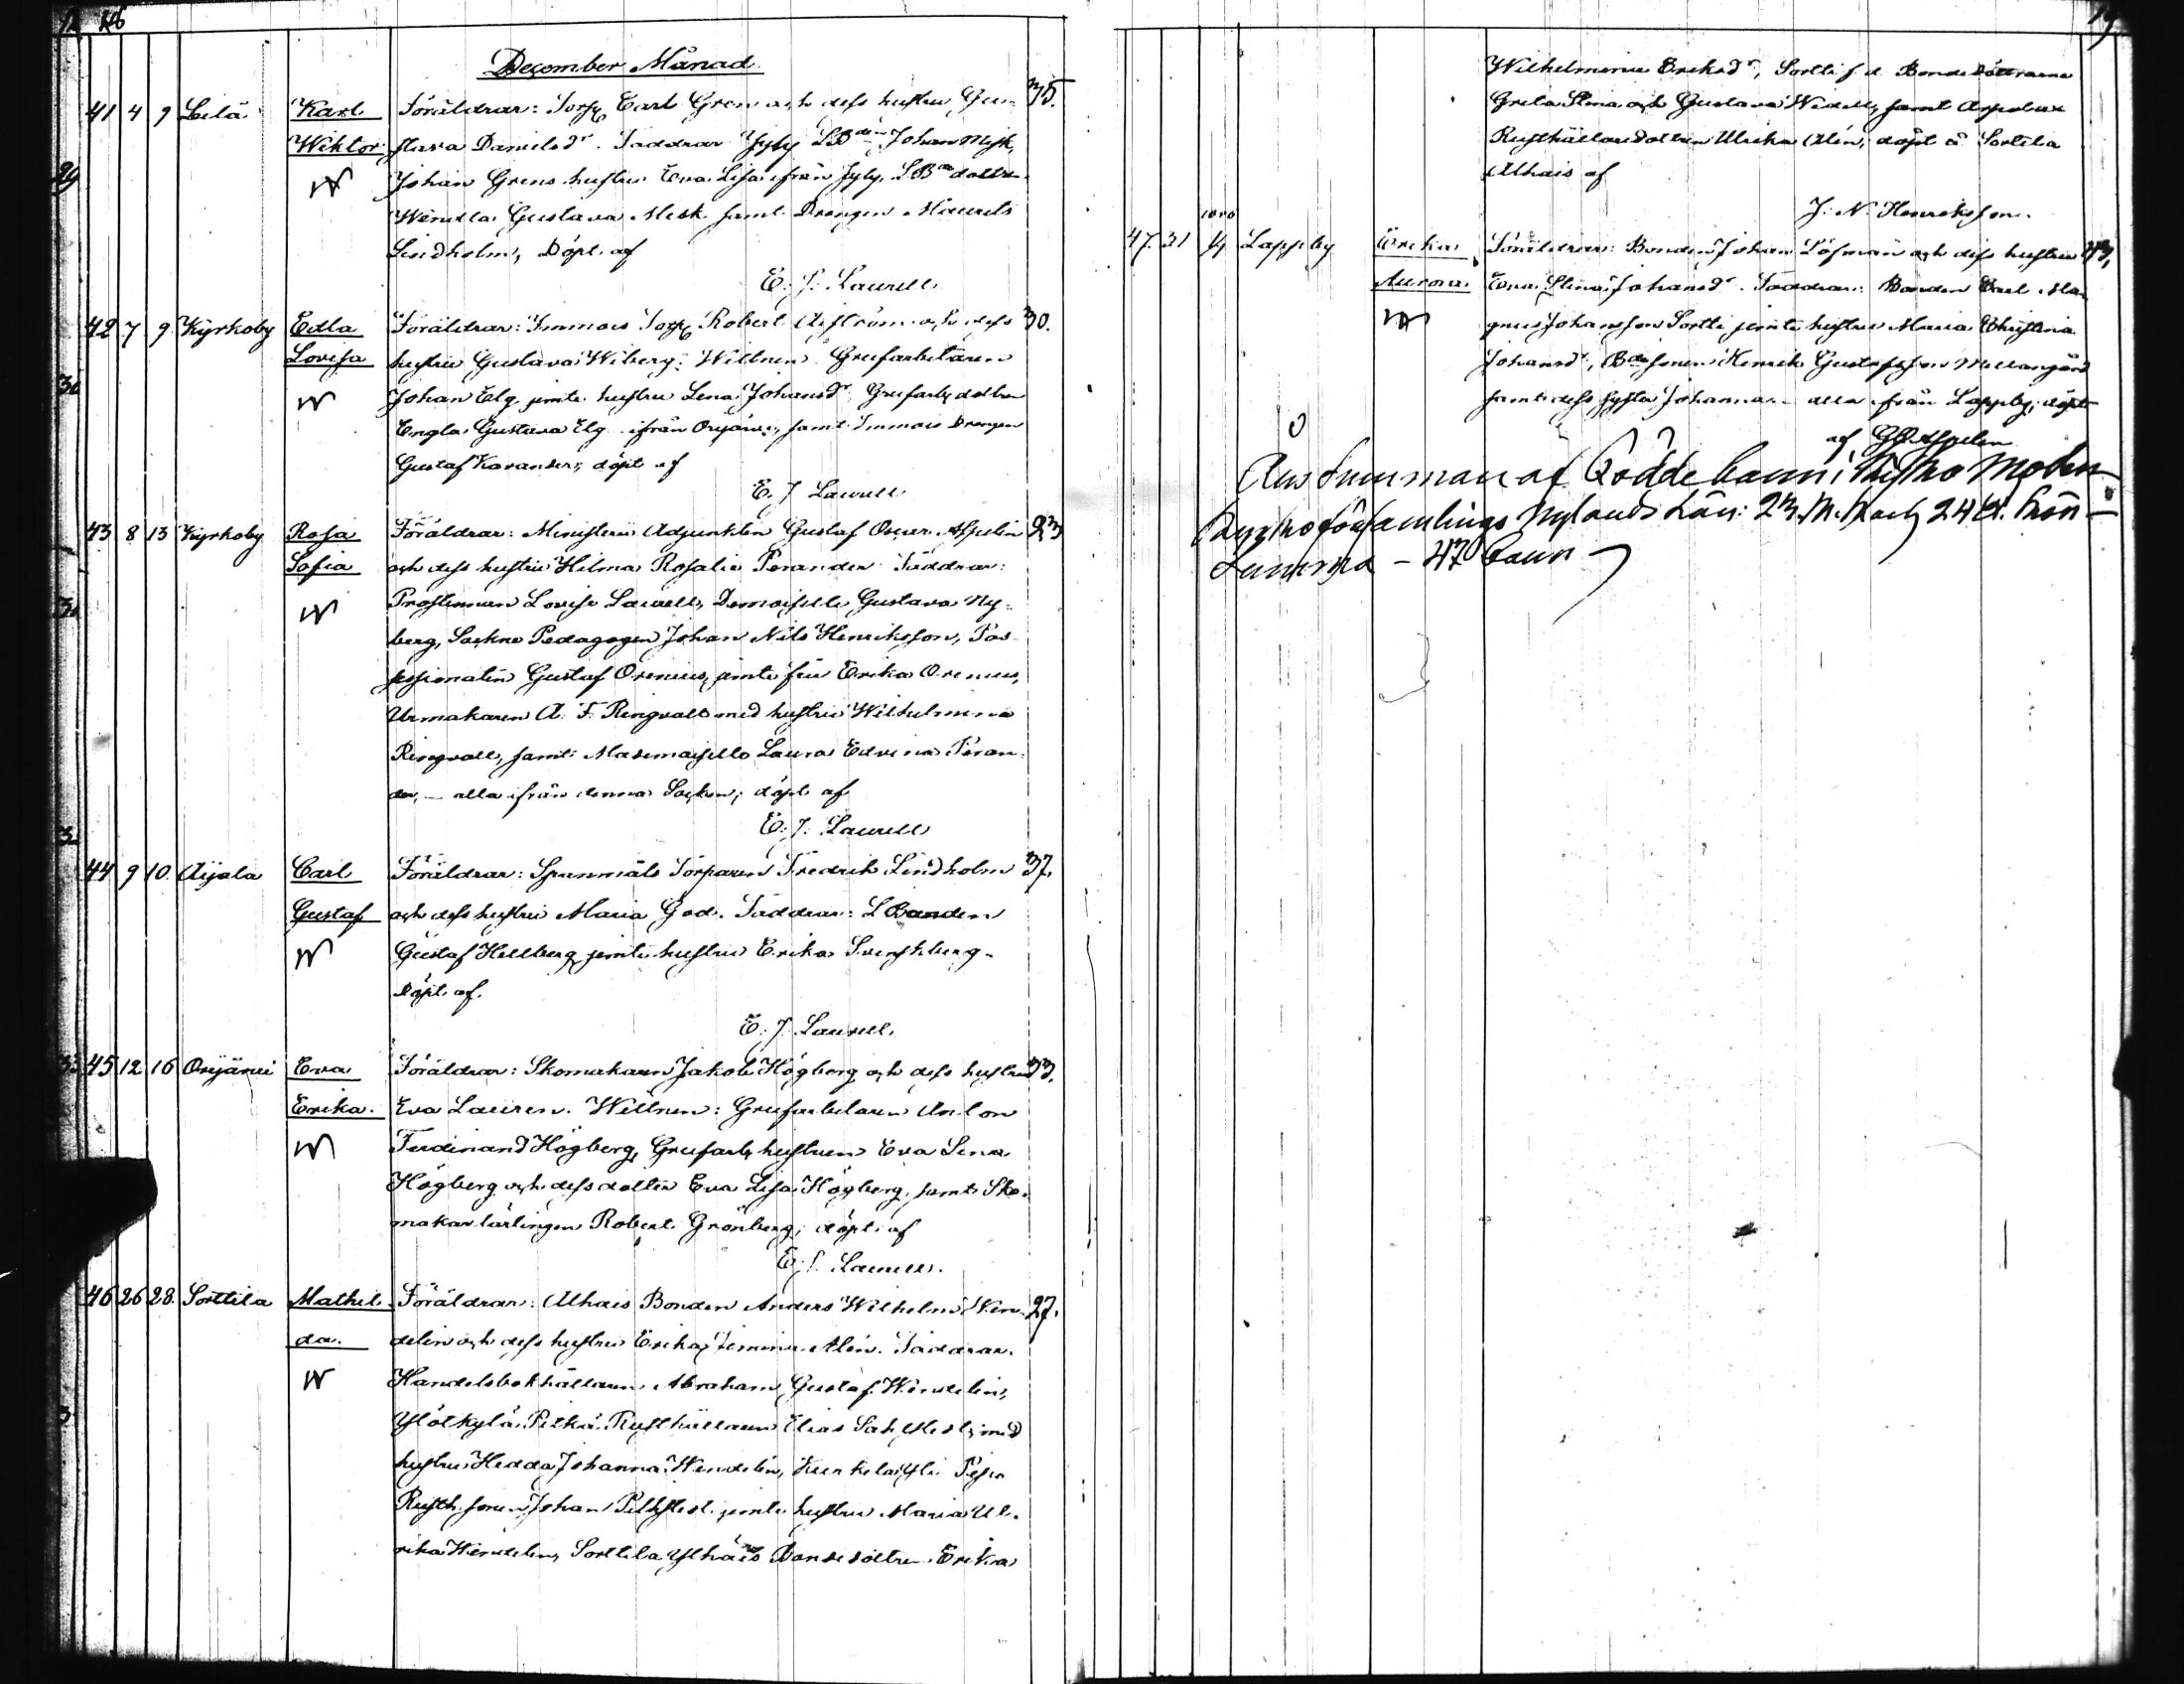 December Månad
41 4 9 Leilä Karl Föräldrar: Torp. Carl Gren och dess hustru Gu- 35.
Wiktor stava Danielsdr. Faddrar Jyly LBden Johan Mysk,
Johan Grens hustru Eva Lisa ifrån Jyly, LBde dottren
Wendla Gustava Mesk samt Drengen Maurits
Lindholm, Döpt af
E. J. Laurell.
42 7 9 Kyrkoby Edla Föräldrar: Immois Torp. Robert Aiström och dess 30.
Lovisa hustru Gustava Wiberg. Wittnen: Grufarbetaren
Johan Elg jemte hustru Lena Johansdr, Grufarb. dottren
Engla Gustava Elg ifrån Orijärvi, samt Immois Drengen
Gustaf Karander; döpt af
E. J. Laurell
43 8 13 Kyrkoby Rosa Föräldrar: Ministerii Adjunkten Gustaf Oscar Aspelin 23
Sofia och dess hustru Hilma Rosalie Perander Faddrar:
Prostinnan Lovise Laurell, Demoiselle Gustava Ny-
berg, Sockne Pedagogen Johan Nils Henriksson, Pos-
sessionaten Gustaf Orenius, jemte fru Erika Orenius,
Urmakaren A. F. Ringvall med hustru Wilhelmina
Ringvall, samt Mademoiselle Laura Edvina Peran-
der, — alla ifrån denna Socken; döpt af
E. J. Laurell
44 9 10 Aijala Carl Föräldrar: Spanmåls Torparen Fredrik Lindholm 37.
Gustaf och dess hustru Maria God. Faddrar: LBonden
Gustaf Hellberg jemte hustru Erika Svenskberg.
Döpt af
E. J. Laurell.
45 12 16 Orijärvi Eva Föräldrar: Skomakaren Jakob Högberg och dess hustru 33.
Erika. Eva Lauren. Wittnen: Grufarbetaren Anton
Ferdinand Högberg, Grufarb. hustrun Eva Lena
Högberg och dess dotter Eva Lisa Högberg, samt Sko-
makar lärlingen Robert Grönberg; döpt af
E. J. Laurell.
46 26 28 Sorttila Mathil- Föräldrar: Alhais Bonden Anders Wilhelm Wen- 27.
da. delin och dess hustru Erika Alén. Faddrar.
Handelsbokhållaren Abraham Gustaf Wendelin,
Ylökylä Pitkä Rusthållaren Elias med
hustru Hedda Johanna Wendelin,
Rusth. sonen Johan jemte hustru Maria Ul-
rika Wendelin, Sorttila Ylhäis Bonde dottren Erika
Wilhelmina Eriksdr, Bonde döttrarna
Greta Stina och Gustava Widell, samt
Rusthållaredottren Ulrika Alén, döpt å Sorttila
Alhais af
J. N. Henriksson.
47. 31 Lappby Erika Föräldrar: Bonden Johan Löfman och dess hustru 43,
Aurora. Eva Stina Johansdr. Faddrar: Bonden Carl Ma-
gnus Johansson Sortti jemte hustru Maria Christina
Johansdr, Bdesonen Henrik Gustafsson Mellangård
samt dess syster Johanna — alla ifrån Lappby, döpt
af GOAspelin
summan af födde barn i Kisko Moder-
kyrkoförsamlings Nylands Län: 23. M. K och 24 Q. Kön —
Summa — 47 barn